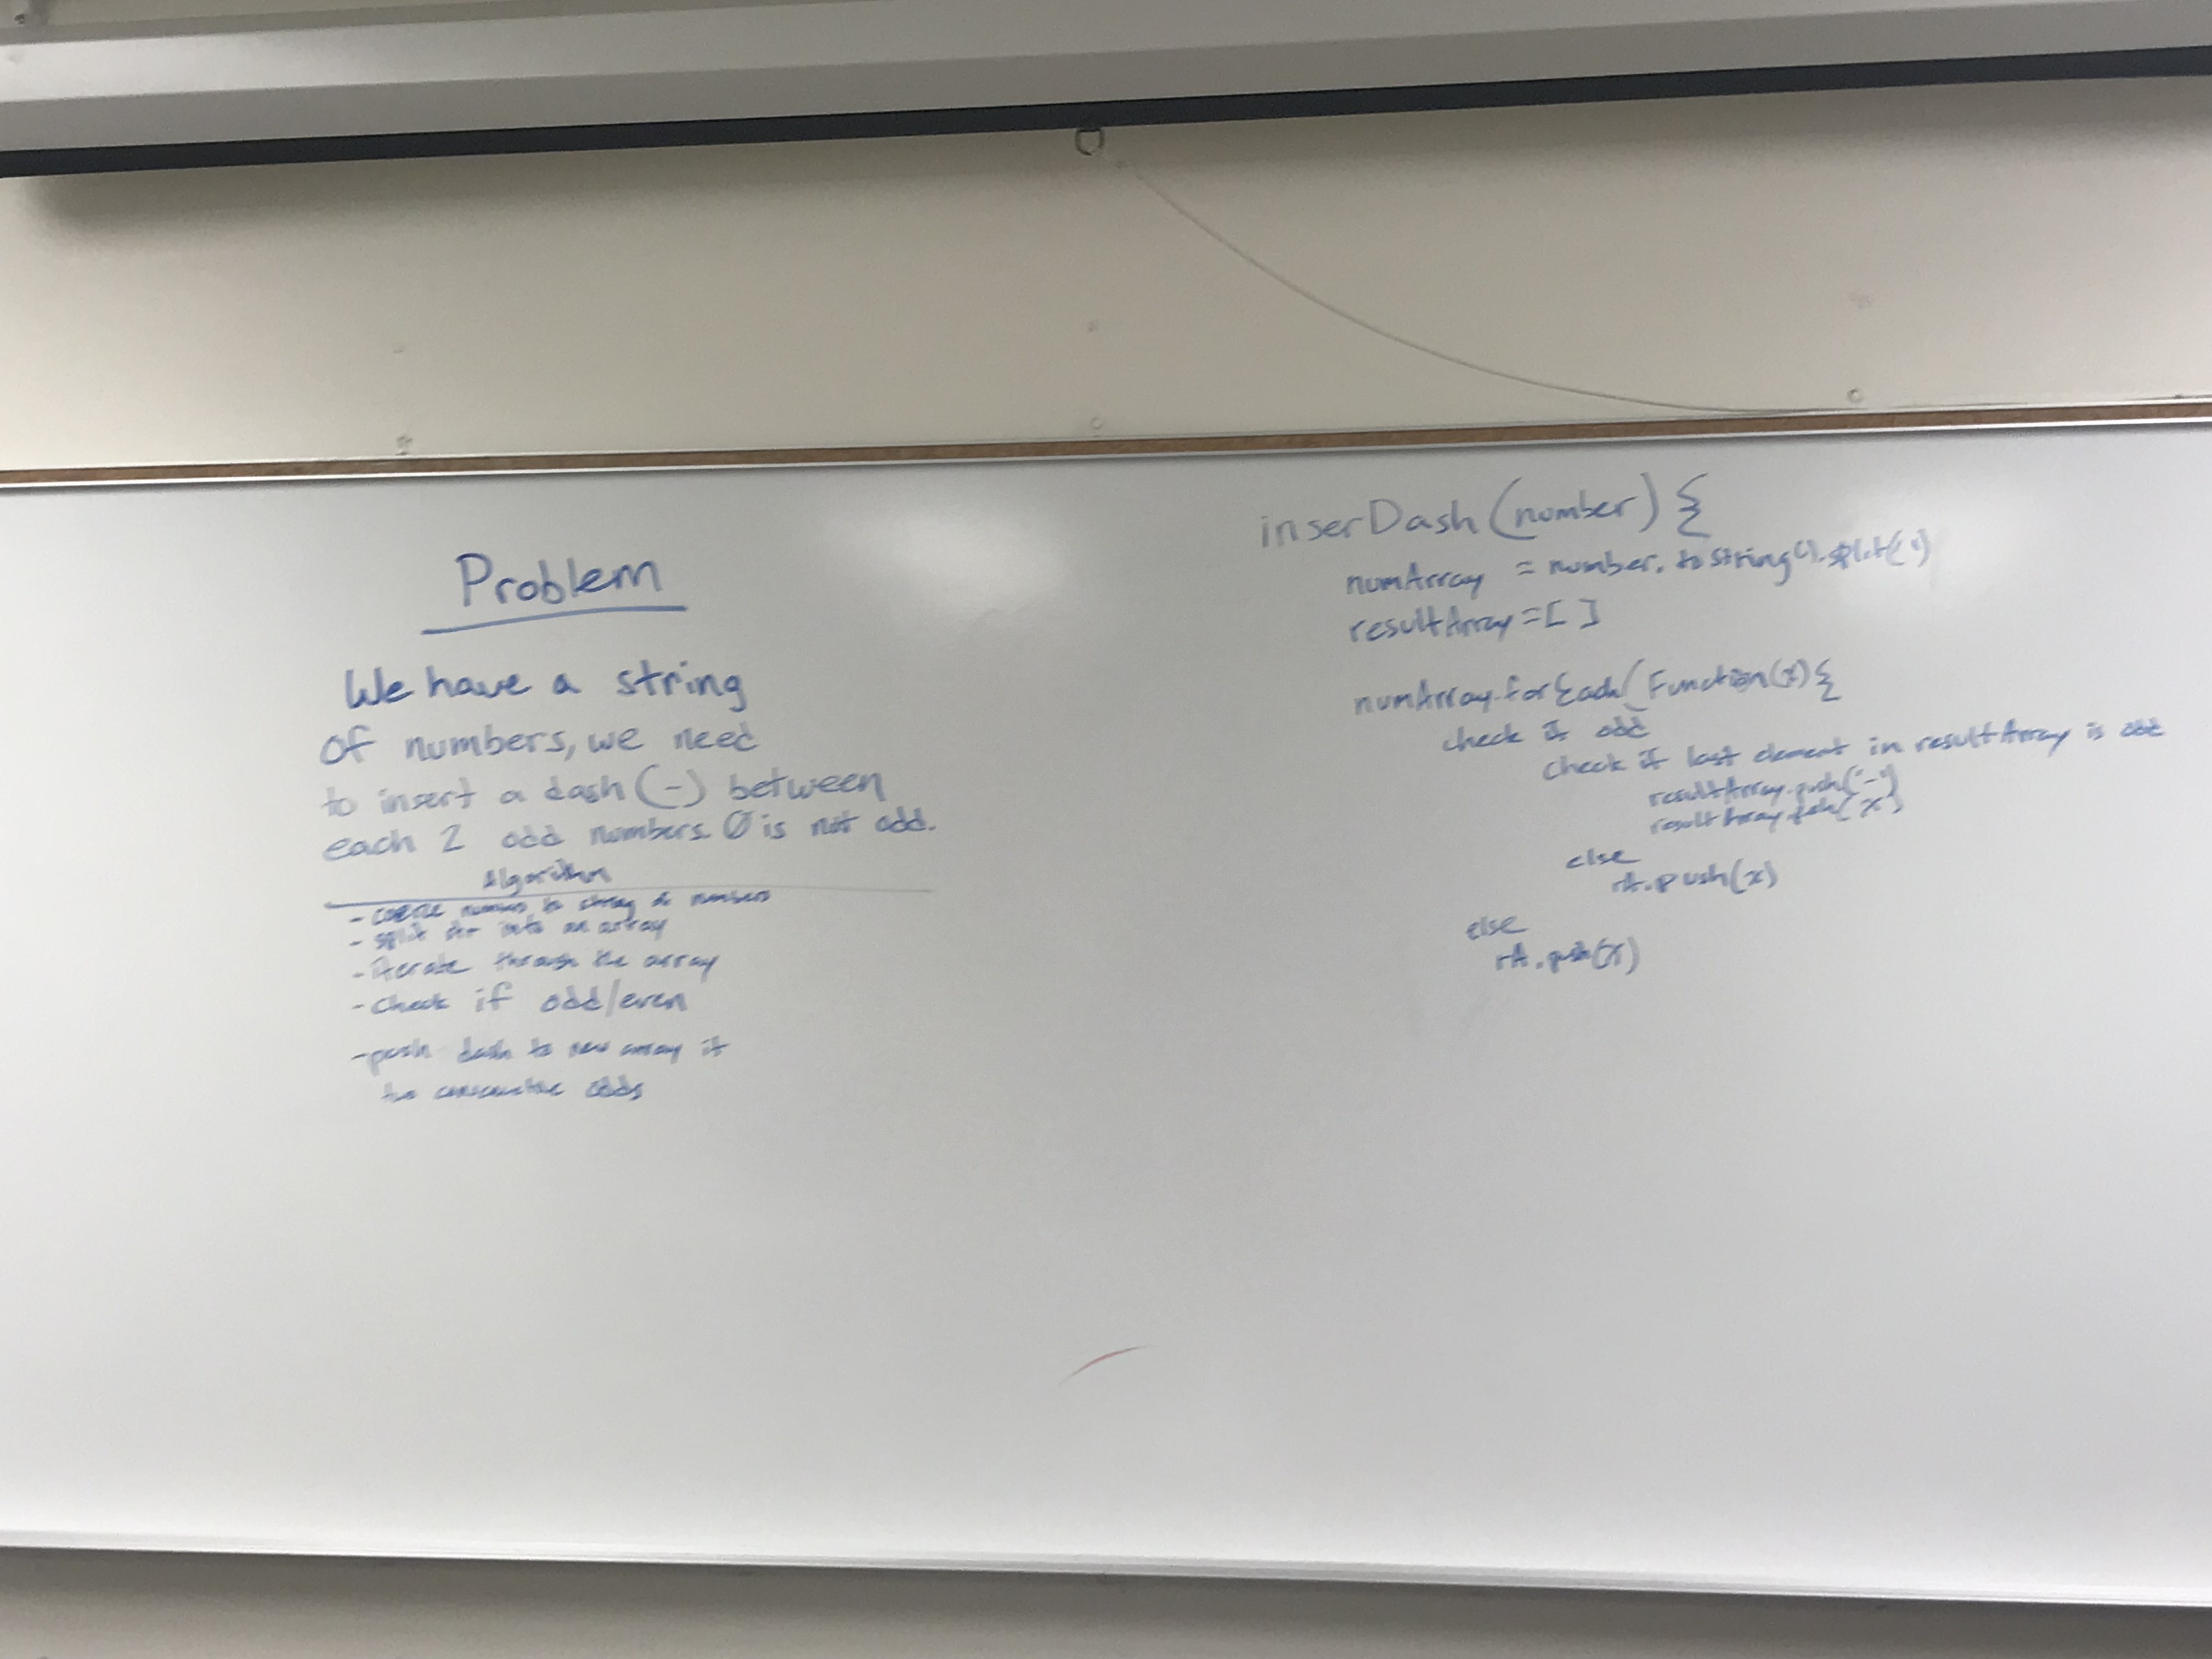 Problem
We have a string
of numbers, we need
to insert a dash (-) between
each 2 odd numbers. 0 is not odd.
Algorithm
- coerce number to string of numbers
- split str into an array
- iterate through the array
- check if odd/even
- push dash to new array if
two consecutive odds
inserDash(number) {
numArray = number.toString().split('')
resultArray = [ ]
numArray.forEach(Function(x) {
check if odd
check if last element in resultArray is odd
resultArray.push('-')
resultArray.push(x)
else
rA.push(x)
else
rA.push(x)